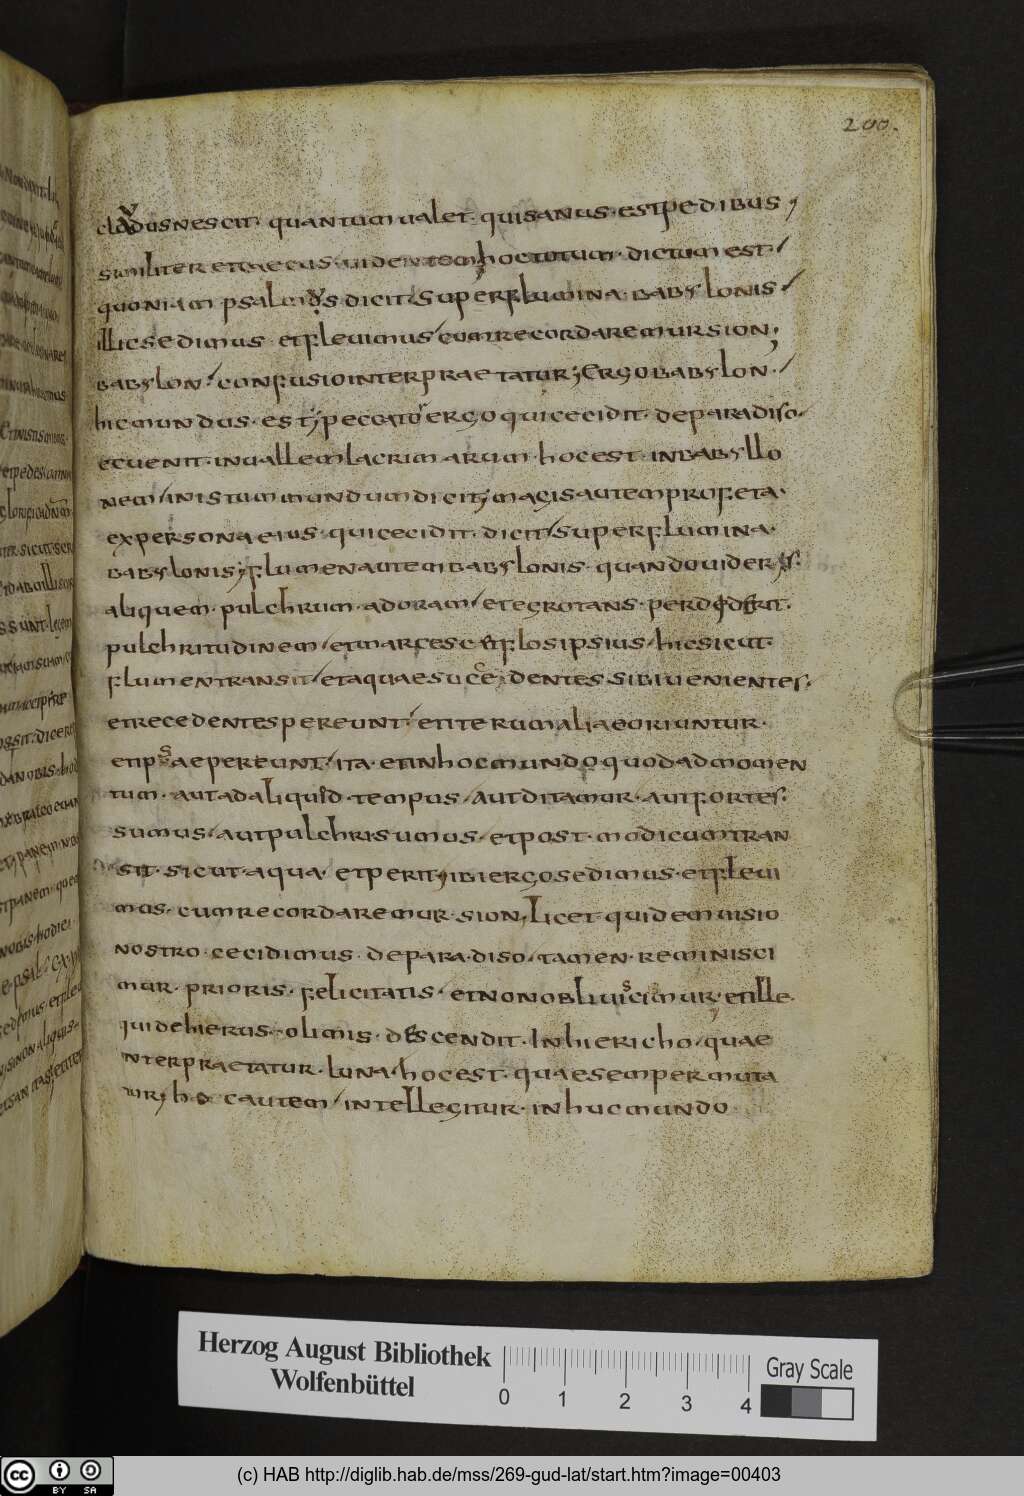 200.
clodus nescit· quantum ualet· qui sanus· est pedibus;
similiter et caecus· uidentem hoc totum· dictum est·
quoniam psalmus dicit super flumina· babylonis
illic sedimus· et fleuimus cum recordaremur sion;
babylon· confusio interpraetatur; Ergo babylon·
hic mundus· est; peccator ergo qui cecidit· de paradiso·
et uenit· in uallem lacrimarum· hoc est· in babyllo
nem in istum mundum dicit; magis autem profeta·
ex persona eius· qui cecidit· dicit super flumina·
babylonis; flumen autem babylonis· quando uideris·
aliquem· pulchrum· adoram et egrotans· perdiderit·
pulchritudinem et marcescat flos ipsius hic sicut·
flumen transit et aquae succedentes sibi uenientes·
et recedentes pereunt· et iterum aliae oriuntur·
et ipsae pereunt· ita· et in hoc mundo quod ad momen
tum· aut ad aliquid· tempus aut ditamur· aut fortes·
sumus aut pulchri sumus et post· modicum tran
sit· sicut· aqua· et perit; ibi ergo sedimus· et fleui
mus· cum recordaremur· sion, Licet quidem uisio
nostro· cecidimus· de paradiso tamen· reminisci
mur· prioris· felicitatis· et non obliuiscimur· et ille·
qui de hierus· olimis· descendit· In hiericho quae
interpraetatur· luna· hoc est· quae semper muta
tur; hoc autem intellegitur· in huc mundo
Herzog August Bibliothek
Wolfenbüttel
0 1 2 3 4
Gray Scale
cc BY SA
(c) HAB http://diglib.hab.de/mss/269-gud-lat/start.htm?image=00403